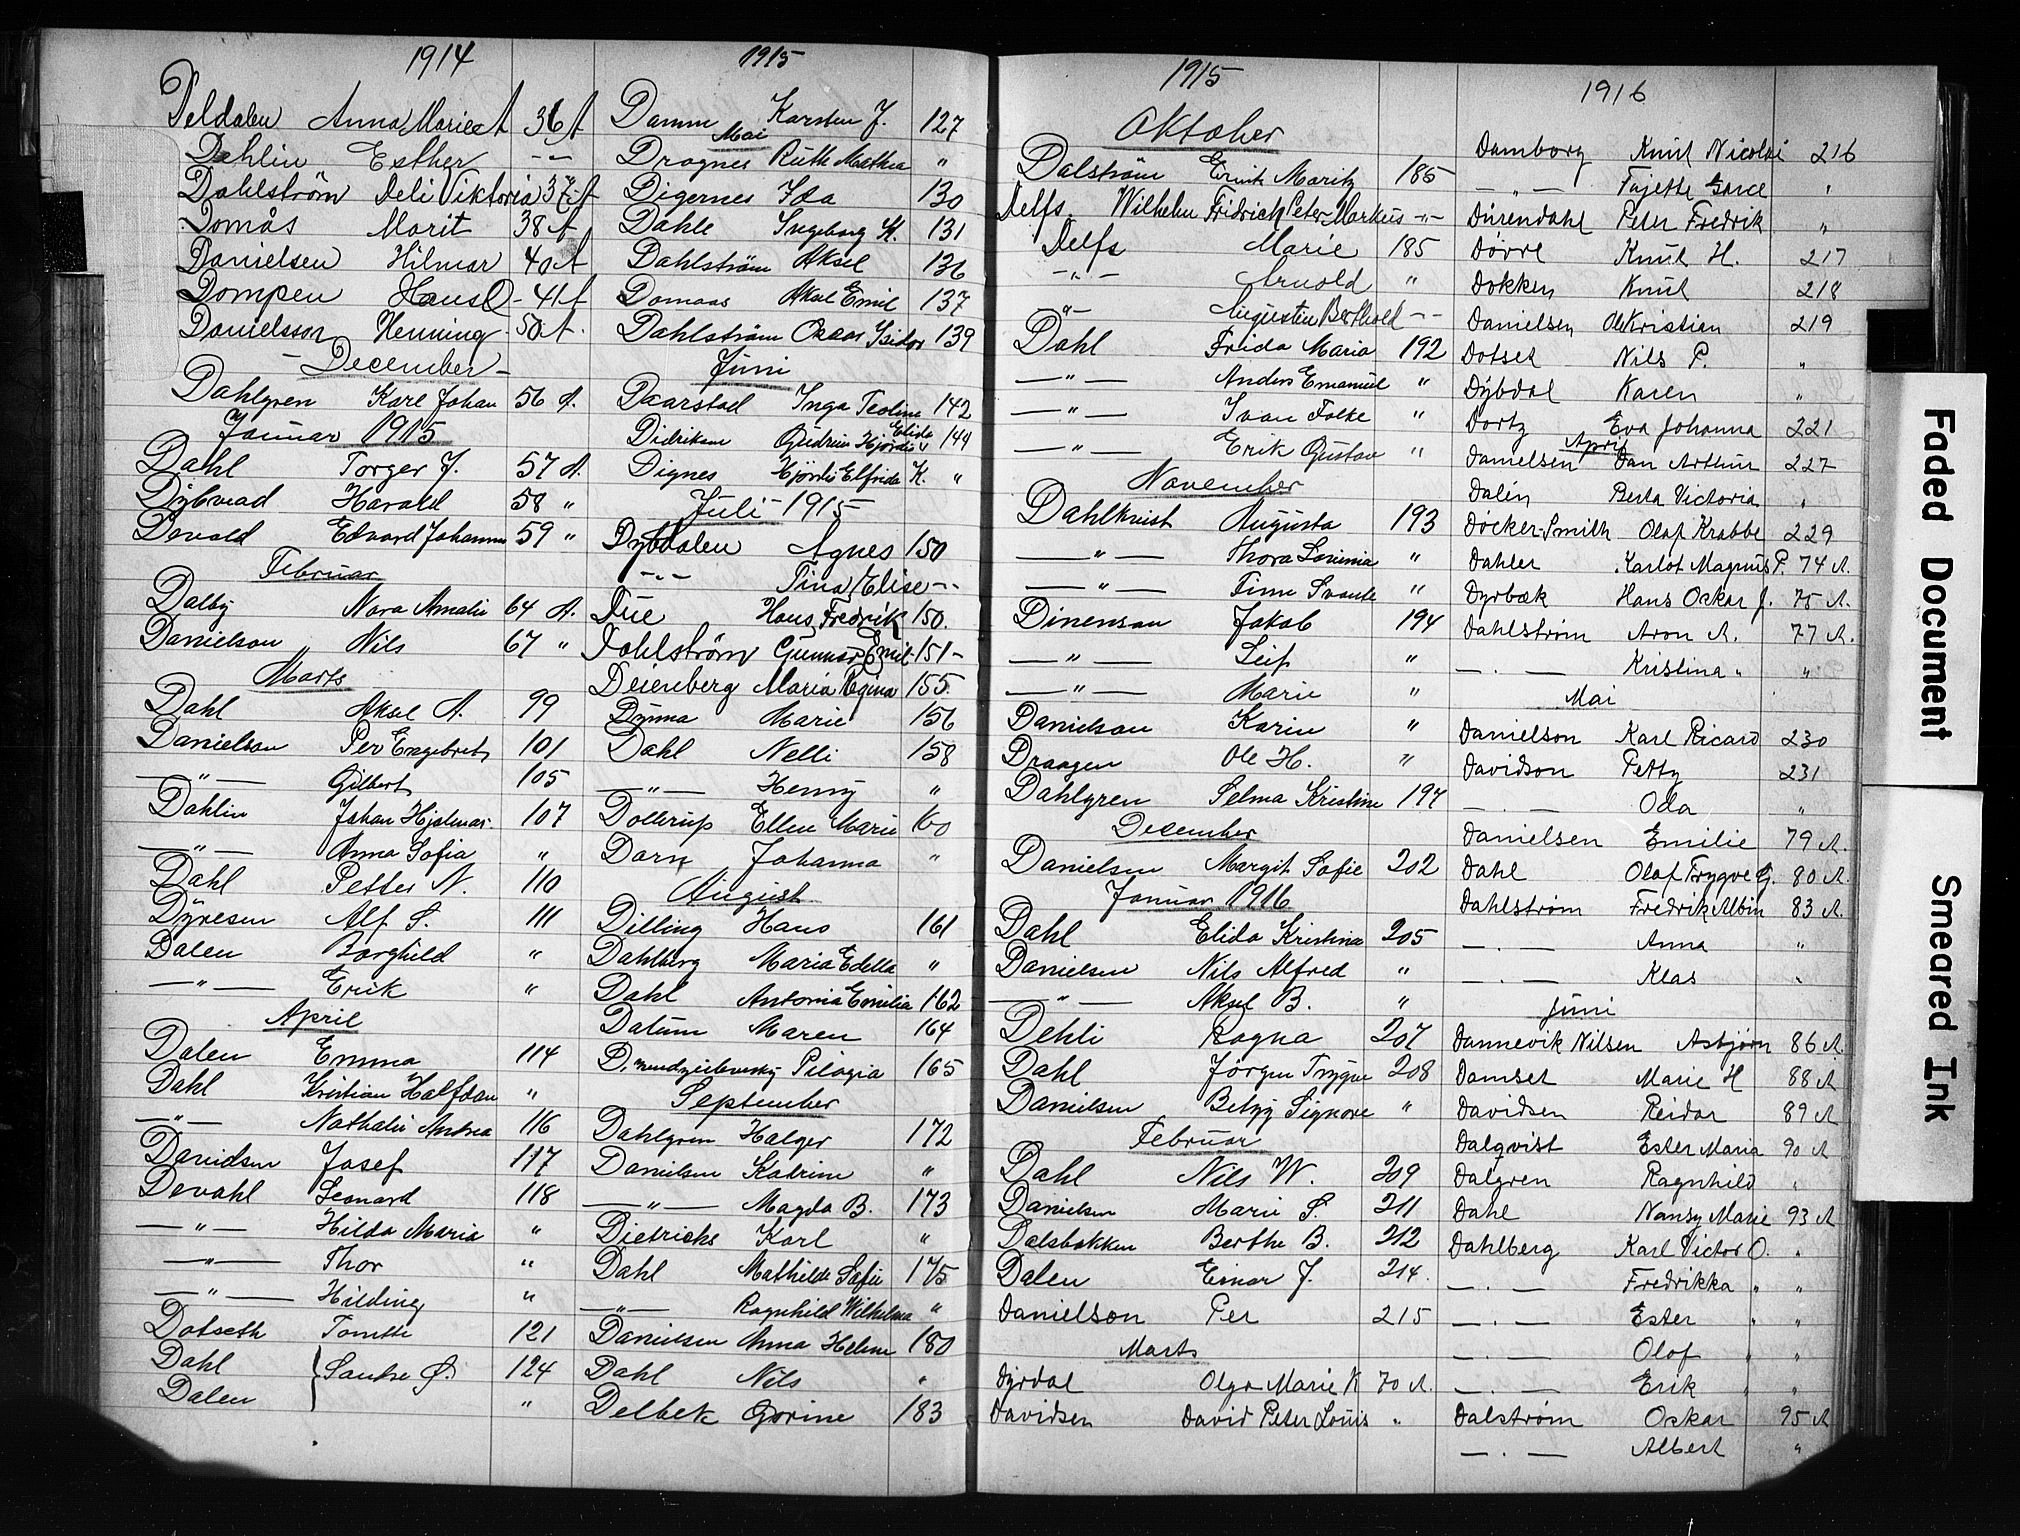 1914
Deldalen Anna Marie A 36 A
Dahlin Esther -"-
Dahlström Deli Viktoria 37 A
Domås Marit 38 A
Danielsen Hilmar 40 A
Dompen Hans O 41 A
Danielsson Henning 50 A.
December
Dahlgren Karl Johan 56 A.
Januar 1915
Dahl Torger J. 57 A.
Dybvad Harald 58 "
Devold Edvard Johannes 59 "
Februar
Dalby Nora Amalie 64 A.
Danielson Nils 67 "
Marts
Dahl Aksel A. 99
Danielson Per Engebret 101
—"— Gilbert 105
Dahlin Johan Hjalmar 107
—"— Anna Sofia "
Dahl Petter N. 110
Dyresen Alf S. 111
Dalen Borghild "
—"— Erik "
April
Dalen Emma 114
Dahl Kristian Halfdan "
—"— Nathalie Andrea 116
Davidsen Josef 117
Devahl Leonard 118
—"— Hilda Maria "
—"— Thor "
—"— Hilding "
Dotseth Tomtte 121
Dahl } Sandre Ø. 124
Dalen "
1915
Damm Karsten J. 127
Mai
Dragnes Ruth Mathea "
Digernes Ida 130
Dahle Ingeborg K. 131
Dahlström Aksel 136
Domaas Aksel Emil 137
Dahlström Oscar Isidor 139
Juni
Daarstad Inga Teoline 142
Didriksen Gudrun Hjördis Elida 144
Dignes Hjördis Elfrida K. "
Juli - 1915
Dybdalen Agnes 150
-"- Tina Elise -"-
Due Hans Fredrik 150
Dahlström Gunnar Emil 151 -
Deienberg Maria Regina 155
Dynna Marie 156
Dahl Nelli 158
—"— Henny "
Dollerup Ellen Marie 160
Dorn Johanna "
August
Dilling Hans 161
Dahlberg Maria Edella "
Dahl Antonia Emilia 162
Datum Maren 164
Pilagia 165
September
Dahlgren Holger 172
Danielsen Katrine "
—"— Magda B. 173
Dietrichs Karl "
Dahl Mathilde Sofie 175
—"— Ragnhild Wilhelma "
Danielsen Anna Helene 180
Dahl Nils "
Delbek Gorine 183
1915
Oktober
Dalström Ernst Moritz 185
Delfs Wilhelm Fridrich Peter Markus -"-
Delfs Marie 185
-"- Arnold "
-"- Augustin Berthold -"-
Dahl Frida Maria 192
—"— Anders Emanuel "
—"— Ivan Folke "
—"— Erik Gustav "
November
Dahlkvist Augusta 193
—"— Thora Lovinia "
—"— Finn Svante "
Dinenson Jakob 194
—"— Leif "
—"— Marie "
Danielson Karin "
Draagen Ole H. "
Dahlgren Selma Kristine 197
December
Danielsen Margit Sofie 202
Januar 1916
Dahl Elida Kristina 205
Danielsen Nils Alfred "
—"— Aksel B. "
Dehli Ragna 207
Dahl Jörgen Trygve 208
Danielsen Betzy Signore "
Februar
Dahl Nils W. 209
Danielsen Marie S. 211
Dalsbakken Berthe B. 212
Dalen Einar J. 214.
Danielson Per 215
Marts
Dyrdal Olga Marie K 70 A.
Davidsen David Peter Louis "
1916
Damborg Knut Nicolai 216
—"— Fajette Garce "
Durendahl Peter Fredrik "
Døvre Knut H. 217
Dokken Knut 218
Danielsen Ole Kristian 219
Dotset Nils P. "
Dybdal Karen "
Dortz Eva Johanna 221
April
Danielsen Dan Arthur 227
Dalén Berta Victoria "
Døcker-Smith Olaf Krabbe 229
Dahler Karlot Magnus P. 74 A.
Dyrbæk Hans Oskar J. 75 A.
Dahlstrøm Aron A. 77 A.
—"— Kristina " "
Mai
Danielson Karl Ricard 230
Davidson Petty 231
—"— Oda "
Danielsen Emilie 79 A.
Dahl Olaf Trygve G. 80 A.
Dahlstrøm Fredrik Albin 83 A.
—"— Anna "
—"— Klas "
Juni
Dannevik Nilsen Asbjørn 86 A.
Damset Marie H 88 A
Davidsen Reidar 89 A
Dalqvist Ester Maria 90 A
Dalgren Ragnhild "
Dahl Nansy Marie 93 A
Dahlberg Karl Victor O. "
—"— Fredrikka " "
—"— Ester " "
—"— Olof " "
—"— Erik " "
Dalstrøm Oskar 95 A
—"— Albert "
Faded Document
Smeared Ink